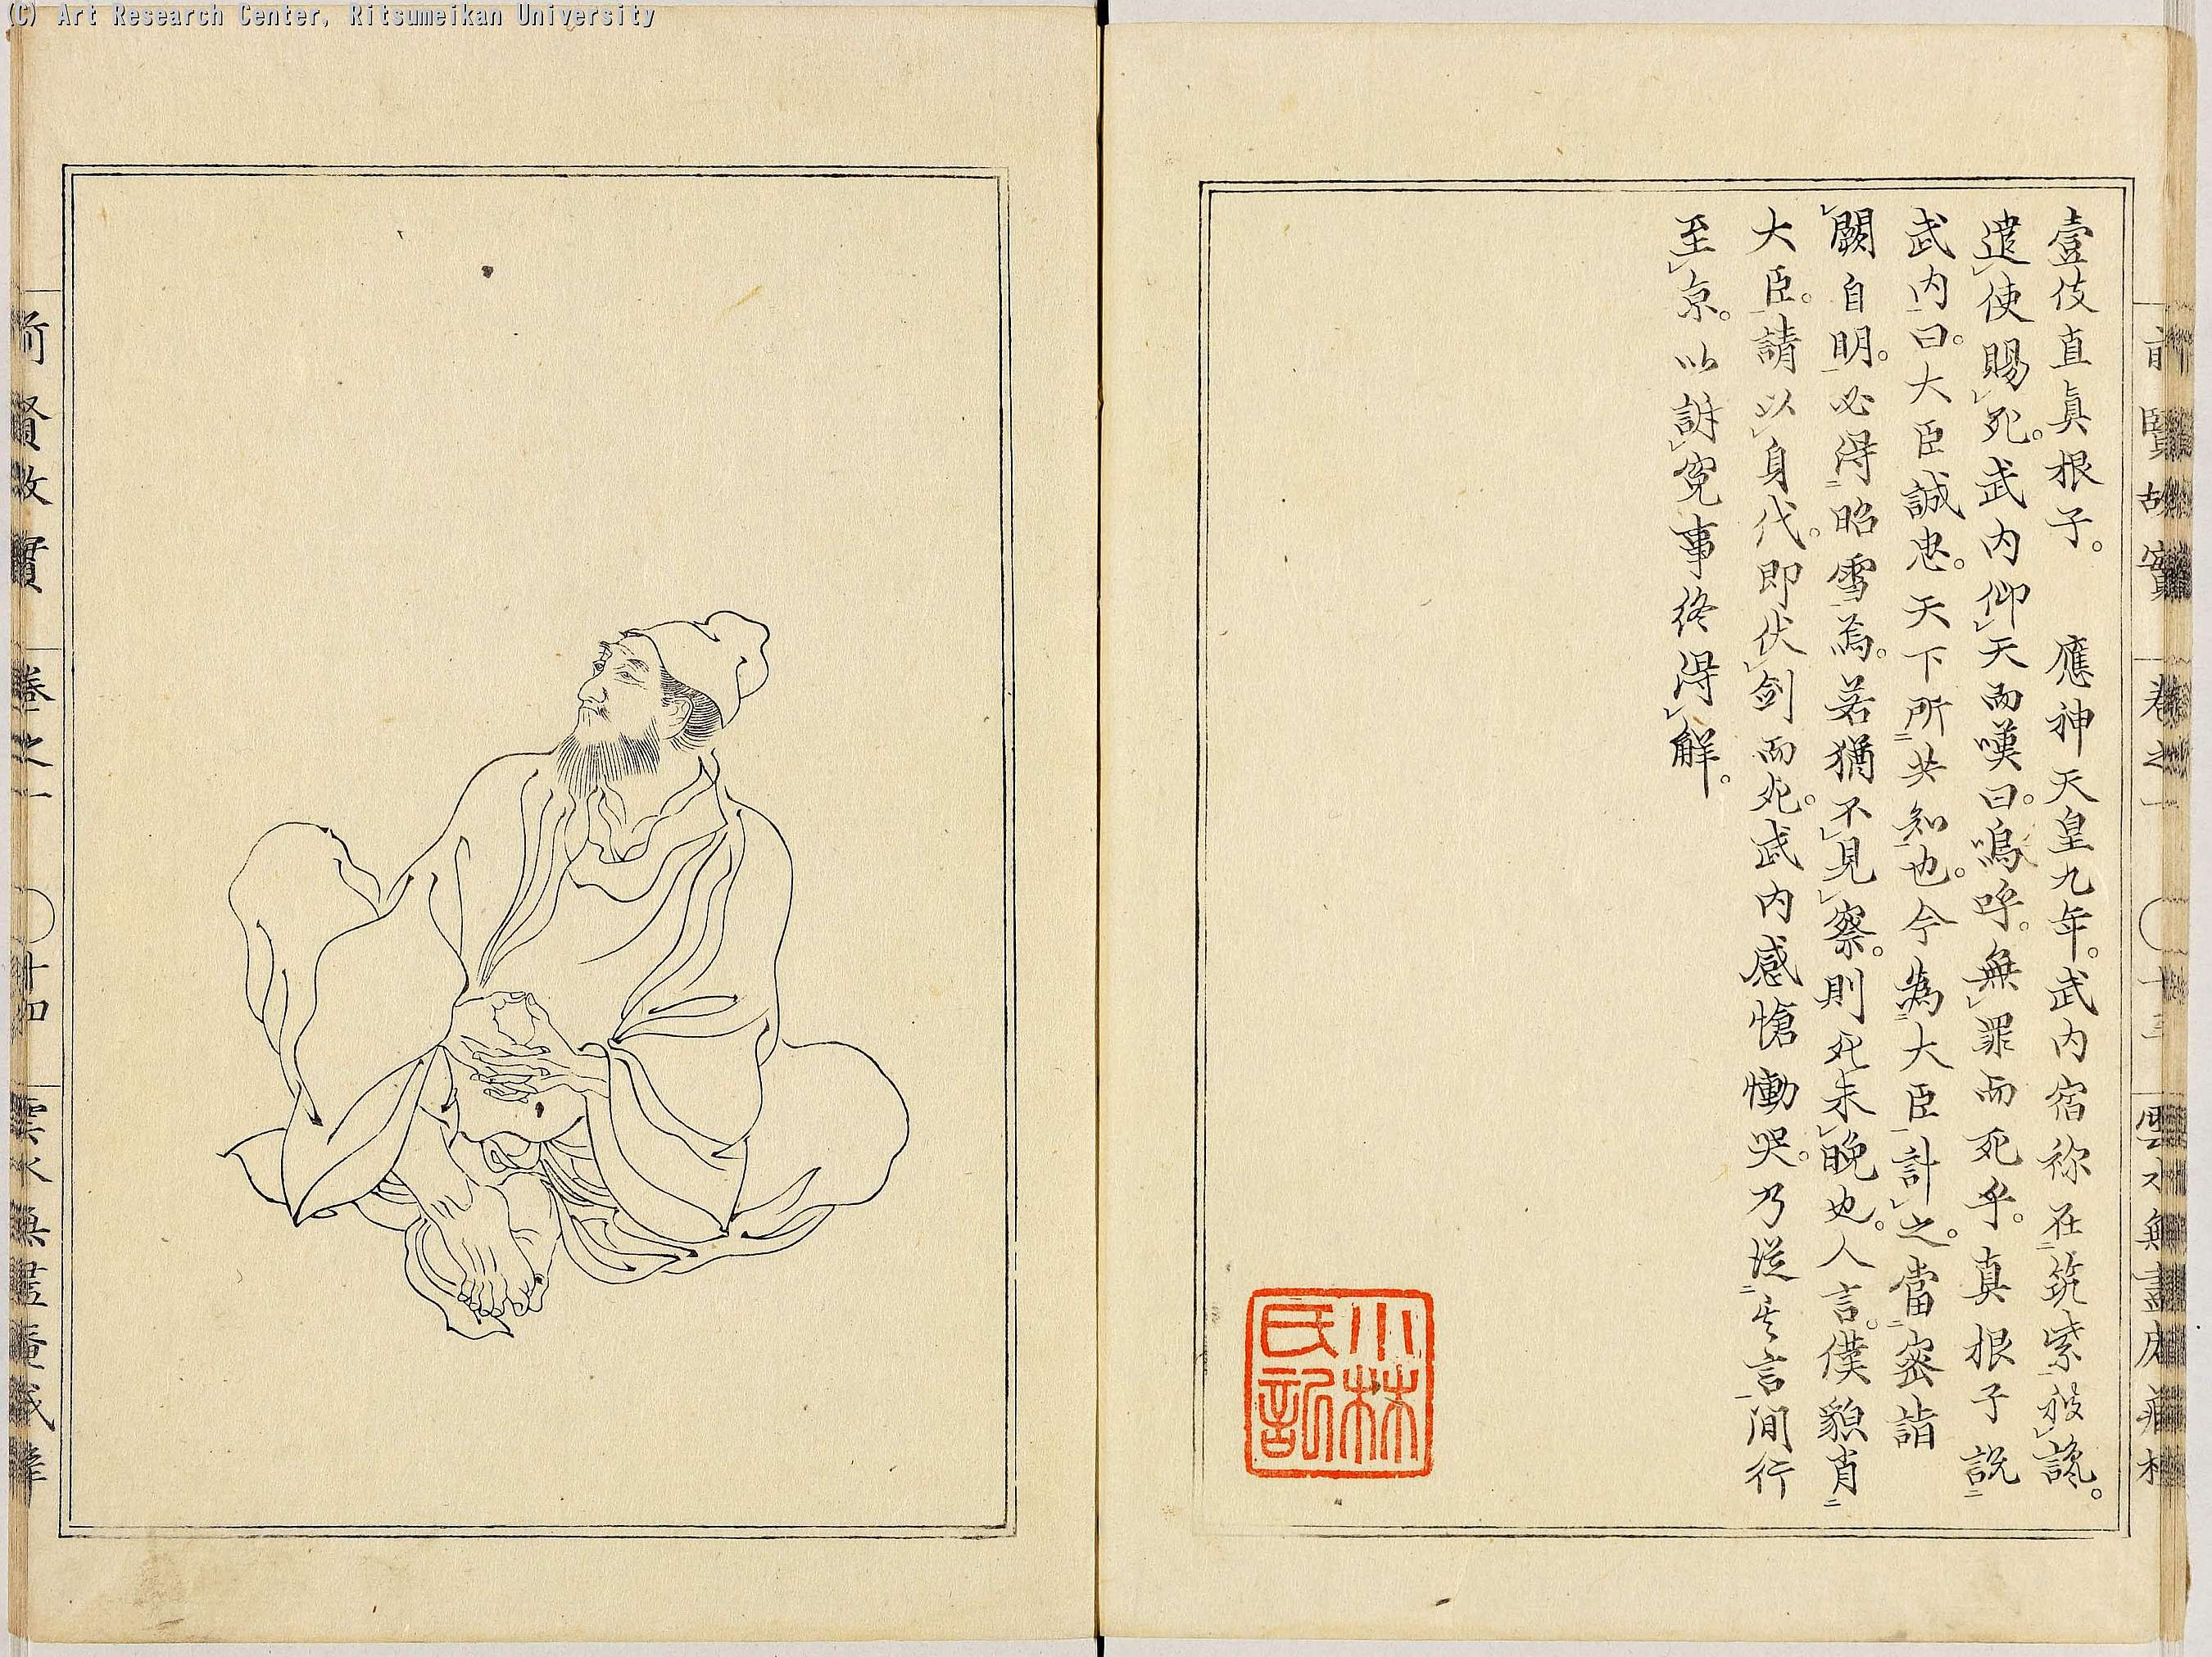 (C) Art Research Center, Ritsumeikan University
壹伎直真根子。　應神天皇九年。武内宿祢在筑紫被讒。
遣使賜死。武内仰天而嘆曰。嗚呼。無罪而死乎。真根子説
武内曰。大臣誠忠。天下所共知也。今為大臣計之。當密詣
闕自明。必得昭雪焉。若猶不見察。則死未晩也。人言。僕貌肖
大臣。請以身代。即伏剣而死。武内感愴慟哭。乃従其言間行
至京。以訴寃事終得解。
小林
氏記
前賢故實
巻之一
〇十三
雲水無盡庵藏梓
前賢故實
巻之一
〇十四
雲水無盡庵藏梓